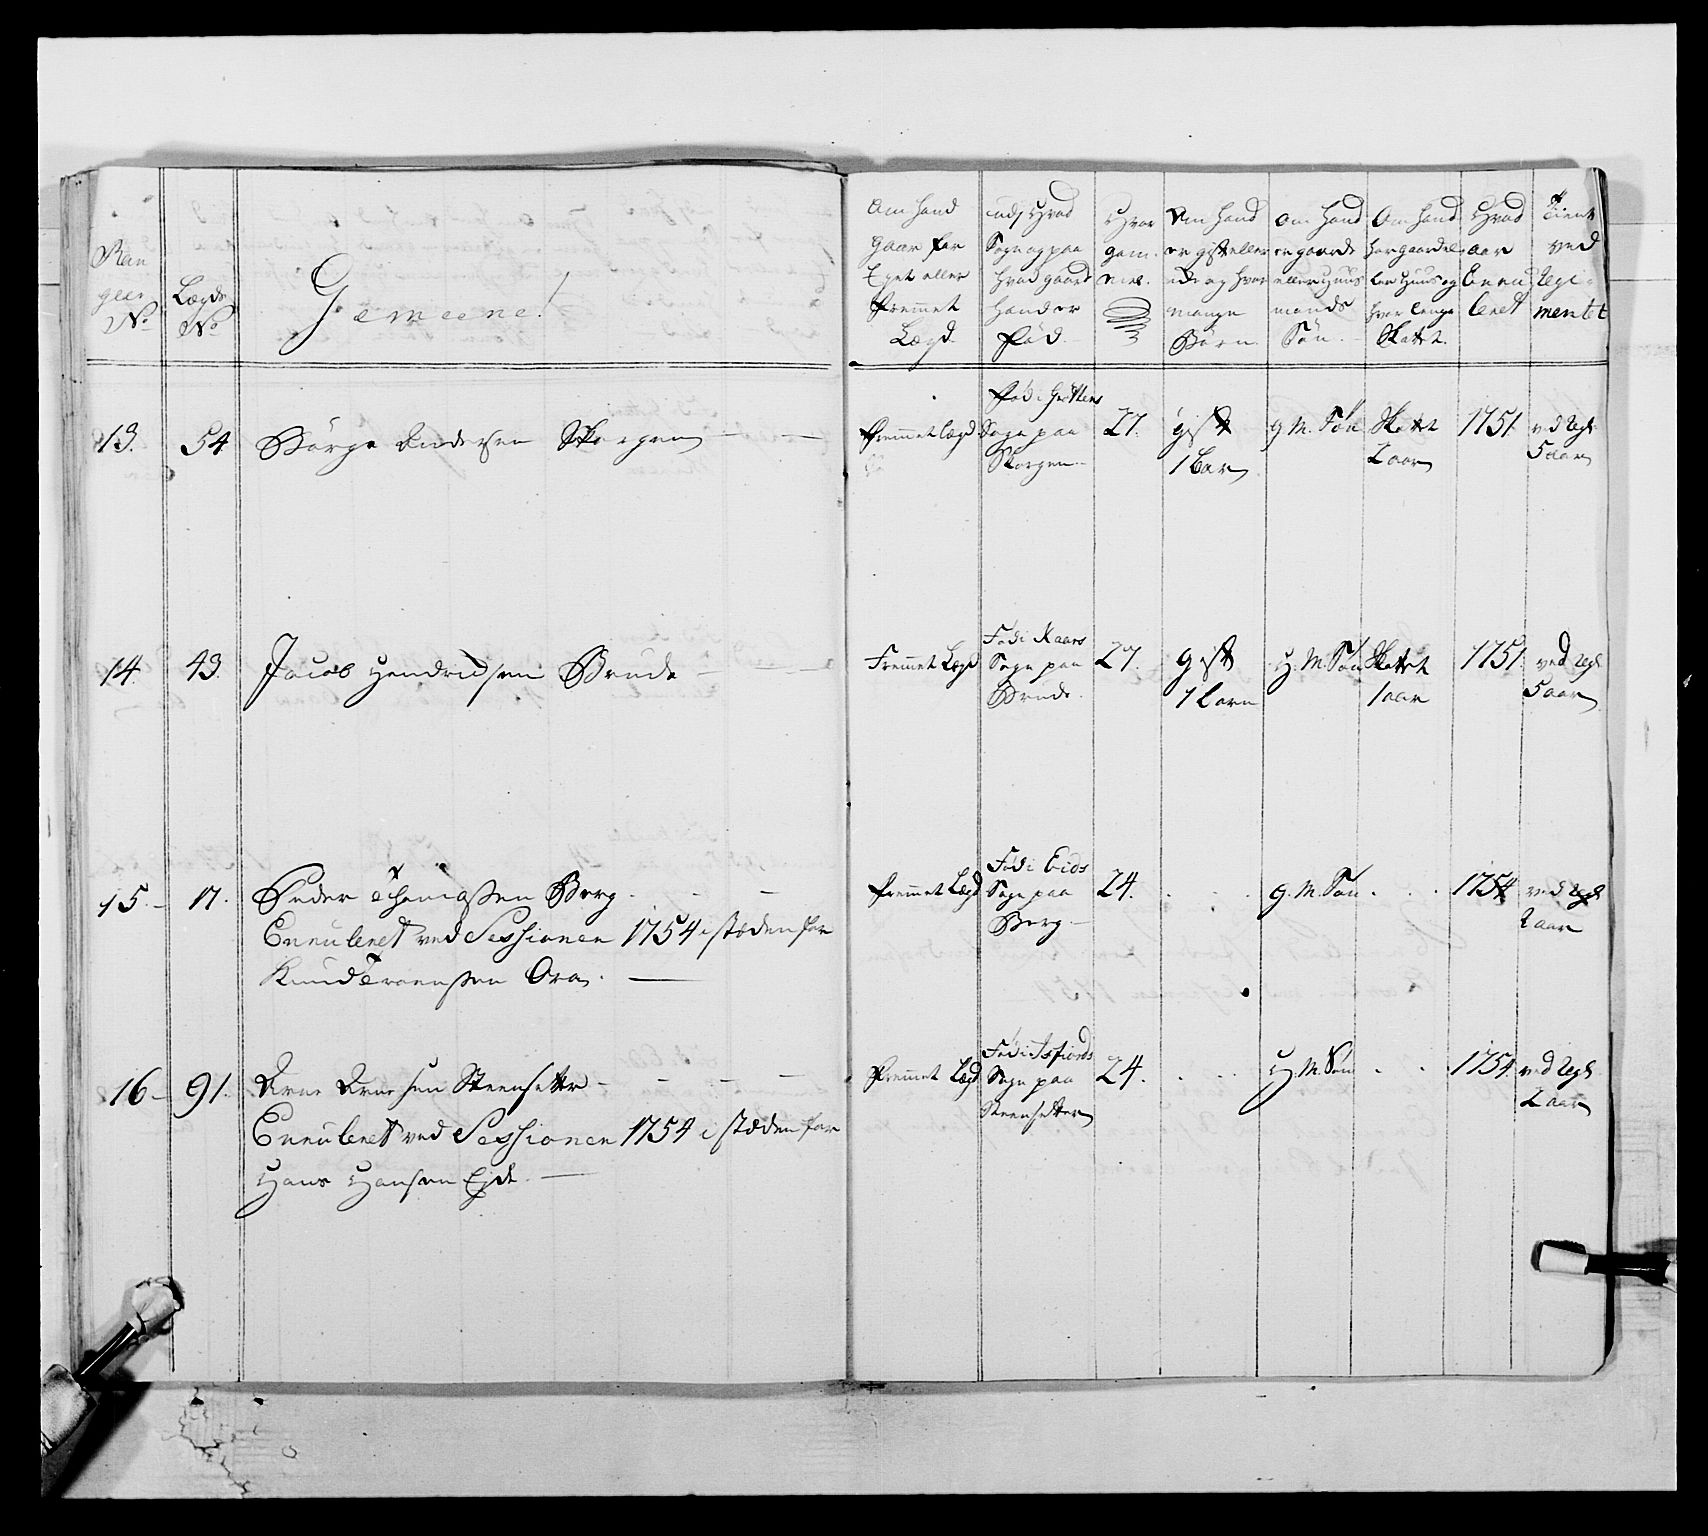 Ran
geer
No
Lægds
No
Gemeene.
Om hand
gaar for
Eget eller
fremmet
Lægd.
udj Hvad
Sogn og paa
hvad gaard
hand er
fød.
Hvor
gam-
mel.
Om hand
er gift eller
ej og hvor
mange
Børn.
om hand
er gaards
eller Huus
mands
Søn.
Om hand
har gaard el-
ler Huus og
hvor lenge
Skattet.
Hvad
aar
Enrul
leret
Tient
ved
Regi-
mentet
13. 54 Børge Andersen Skorgen
fremmet Lægd
Fød i Gryttens
Sogn paa
Skorgen
27. gift
1 barn
g. M. Søn
Skattet
2 aar
1751
ved Regt
5 aar
14. 43. Jacob Hendrichsen Brude
Fremmet Lægd
Fød i Kaars
Sogn paa
Brude.
27. gift
1 barn
H. M. Søn
Skattet
1 aar
1751.
ved Regt
5 aar
15. 17. Peder Thomassen Berg
Enruleret ved Sessionen 1754 i stæden for
Knud Iversen Ora.
fremmet Lægd
Fød i Eids
Sogn paa
Berg
24. g. M. Søn 1754 ved Regt
2 aar
16 91. Arne Arnesen Steensetter
Enruleret ved Sessionen 1754 i stæden for
Hans Hansen Ejde.
fremmet Lægd
Fød i Isfiords
Sogn paa
Steensetter
24. H. M. Søn 1754 ved Regt
2 aar